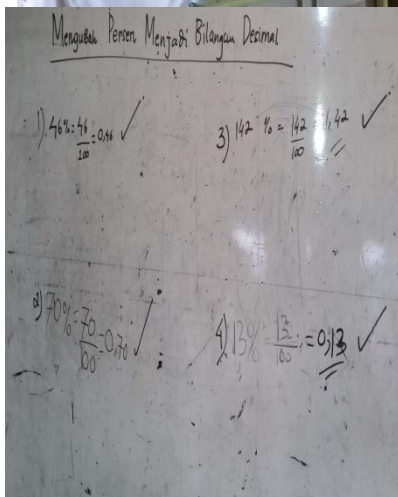 Mengubah Persen Menjadi Bilangan Desimal
1). 46% = 46/100 = 0,46 ✓
3) 142 % = 142/100 = 1,42 ✓
2) 70% = 70/100 = 0,70 ✓
4) 13% = 13/100 = 0,13 ✓